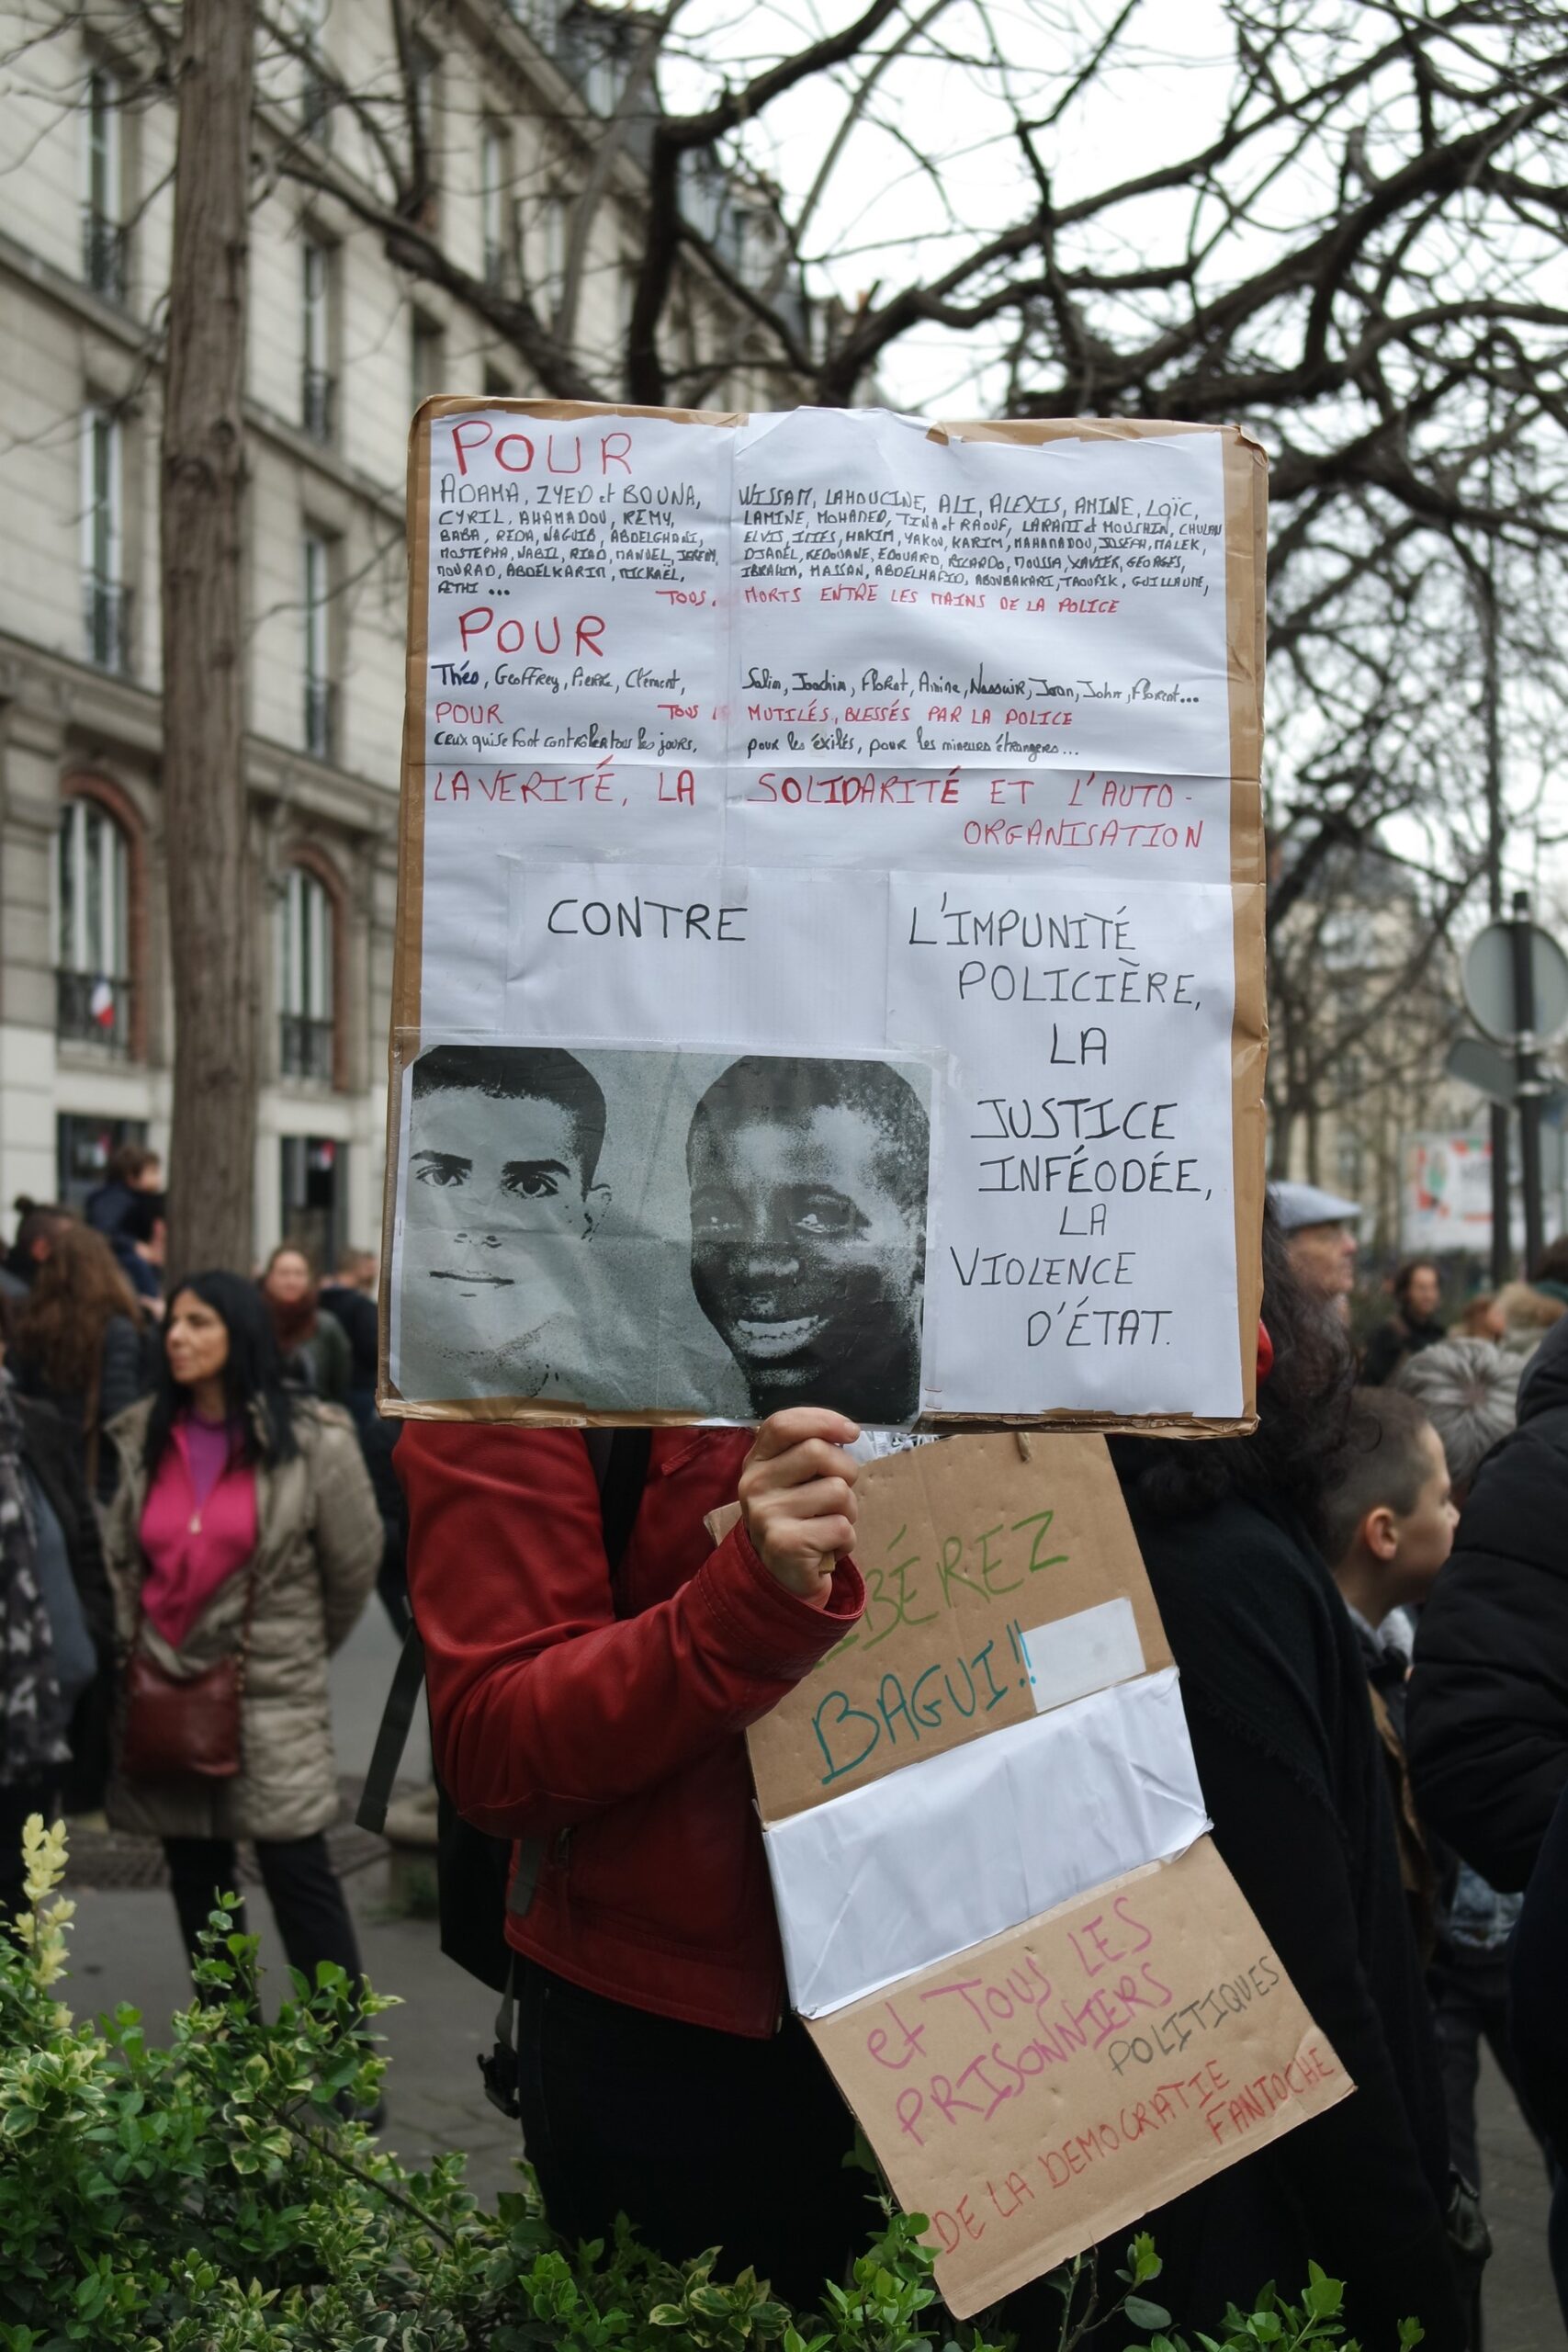 POUR
ADAMA, ZYED et BOUNA,
CYRIL, AHAMADOU, REMY,
BABA, REDA, NAGUIB, ABDELGHANI,
MOSTEPHA, NABIL, RIAD, MANUEL, JEREMY,
MOURAD, ABDELKARIM, MICKAËL,
...
WISSAM, LAHOUCINE, ALI, ALEXIS, AMINE, LOÏC,
LAMINE, MOHAMED, TINA et RAOUF, LARAMI et MOUSHIN,
ELVIS, INES, HAKIM, YAKOU, KARIM, MAHAMADOU, JOSEPH, MALEK,
DJAMEL, REDOUANE, EDOUARD, RICARDO, MOUSSA, XAVIER, GEORGES,
IBRAHIM, MASSAN, ABDELHAFID, ABOUBAKARI, TAOUFIK, GUILLAUME,
TOUS. MORTS ENTRE LES MAINS DE LA POLICE
POUR
Théo, Geoffrey, Pierre, Clément,
Salim, Joachim, Amine, Nassuir, Joan, John, Florent...
POUR TOUS MUTILÉS, BLESSÉS PAR LA POLICE
Ceux qui se font contrôler tous les jours, pour les éxilés, pour les mineurs étrangers...
LA VERITÉ, LA SOLIDARITÉ ET L'AUTO-
ORGANISATION
CONTRE
L'IMPUNITÉ
POLICIÈRE,
LA
JUSTICE
INFÉODÉE,
LA
VIOLENCE
D'ÉTAT.
BÉREZ
BAGUI!!
et TOUS LES
PRISONNIERS
POLITIQUES
DE LA DEMOCRATIE
FANTOCHE